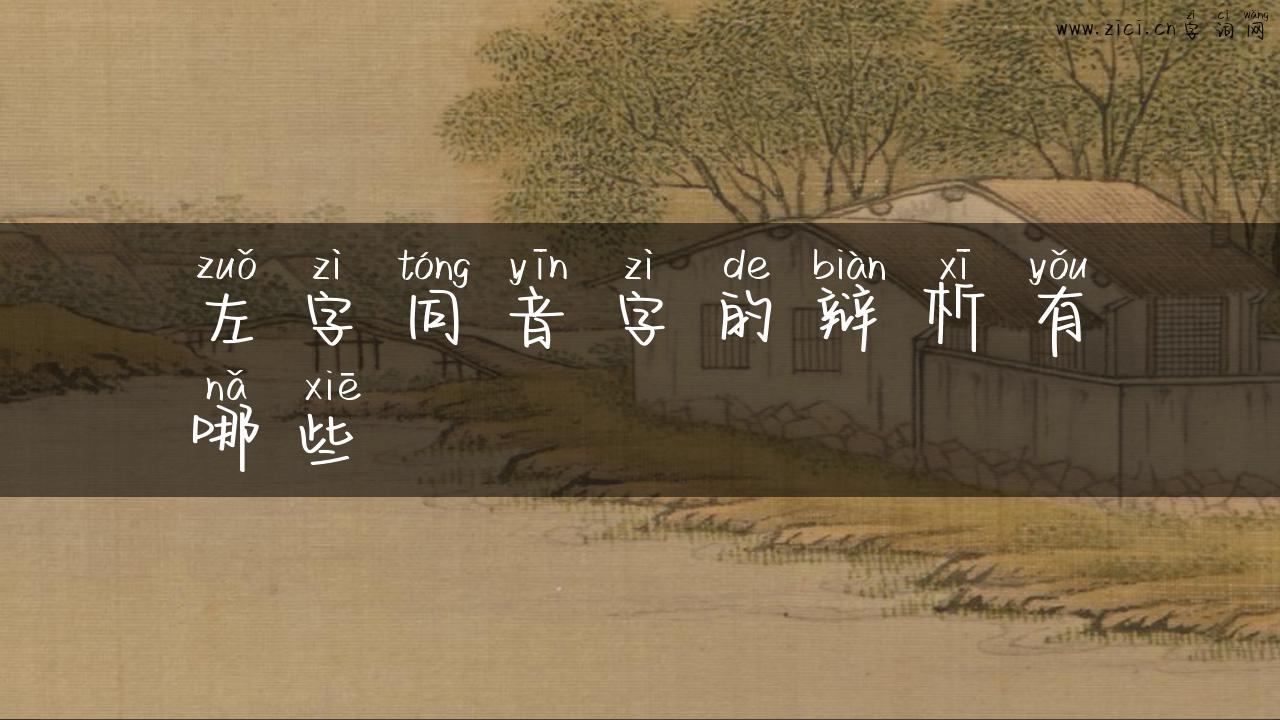 www.zici.cn zì cí wǎng
字词网
zuǒ zì tóng yīn zì de biàn xī yǒu
左字同音字的辩析有
nǎ xiē
哪些